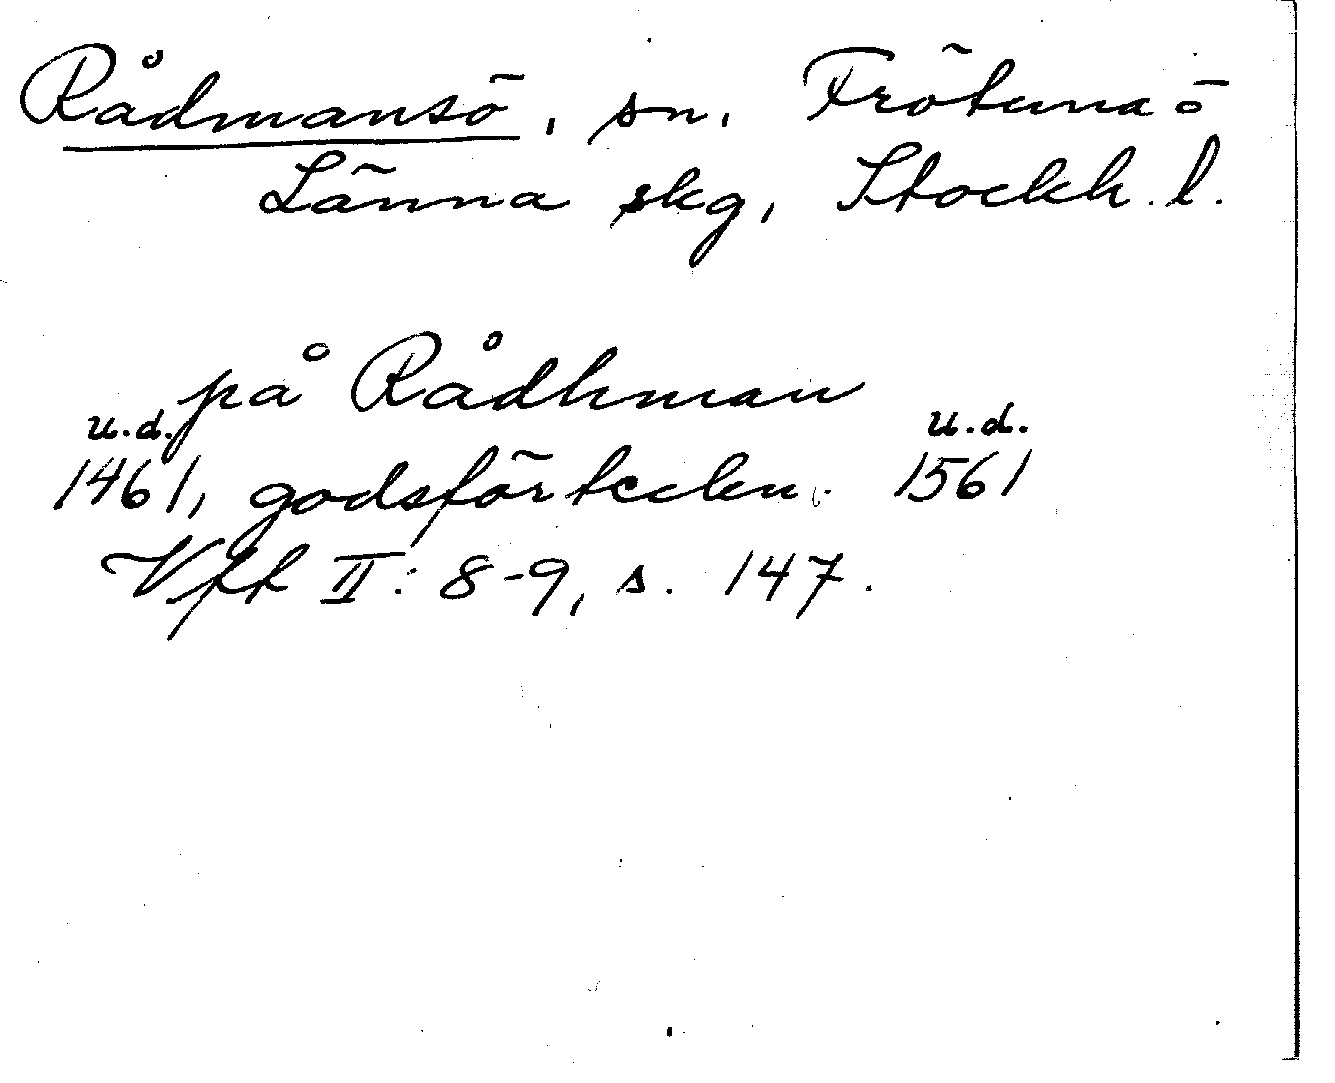 Rådmansö, sn, Frötuna o
Länna skg, Stockh. l.
på Rådhman
u.d. u.d.
1461, godsförteckn. 1561
Vfft II: 8-9, s. 147.